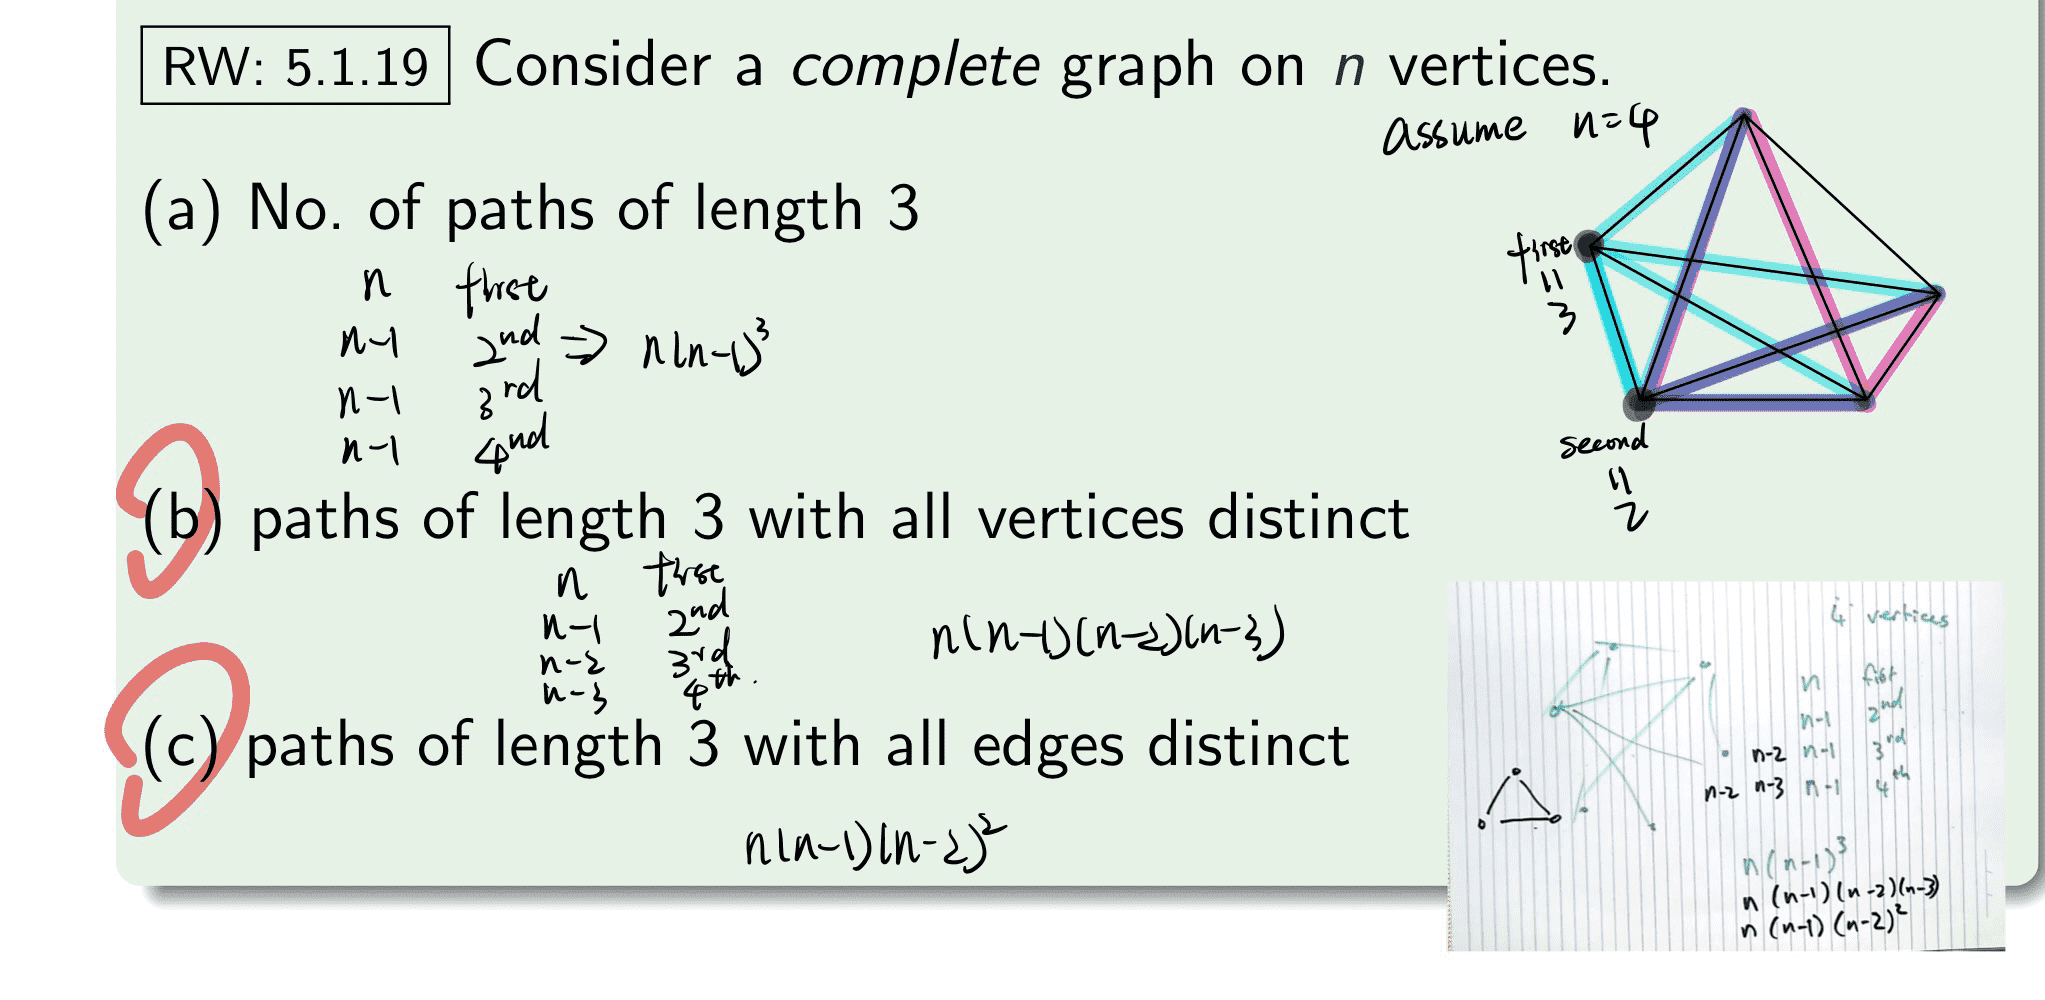 RW: 5.1.19 Consider a complete graph on n vertices.
assume n=4
(a) No. of paths of length 3
n first
n-1 2nd ⇒ n(n-1)³
n-1 3rd
n-1 4nd
first
11
3
second
11
2
(b) paths of length 3 with all vertices distinct
n first
n-1 2nd
n-2 3rd
n-3 4th.
n(n-1)(n-2)(n-3)
(c) paths of length 3 with all edges distinct
n(n-1)(n-2)²
4 vertices
n fist
n-1 2nd
n-2 n-1 3rd
n-2 n-3 n-1 4th
n(n-1)³
n (n-1)(n-2)(n-3)
n (n-1) (n-2)²